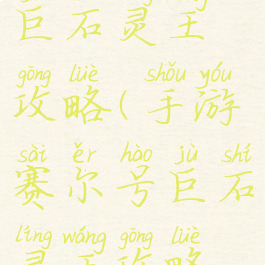 巨石灵王
gōng lüè shǒu yóu
攻略(手游
sài ěr hào jù shí
赛尔号巨石
líng wáng gōng lüè
灵王攻略